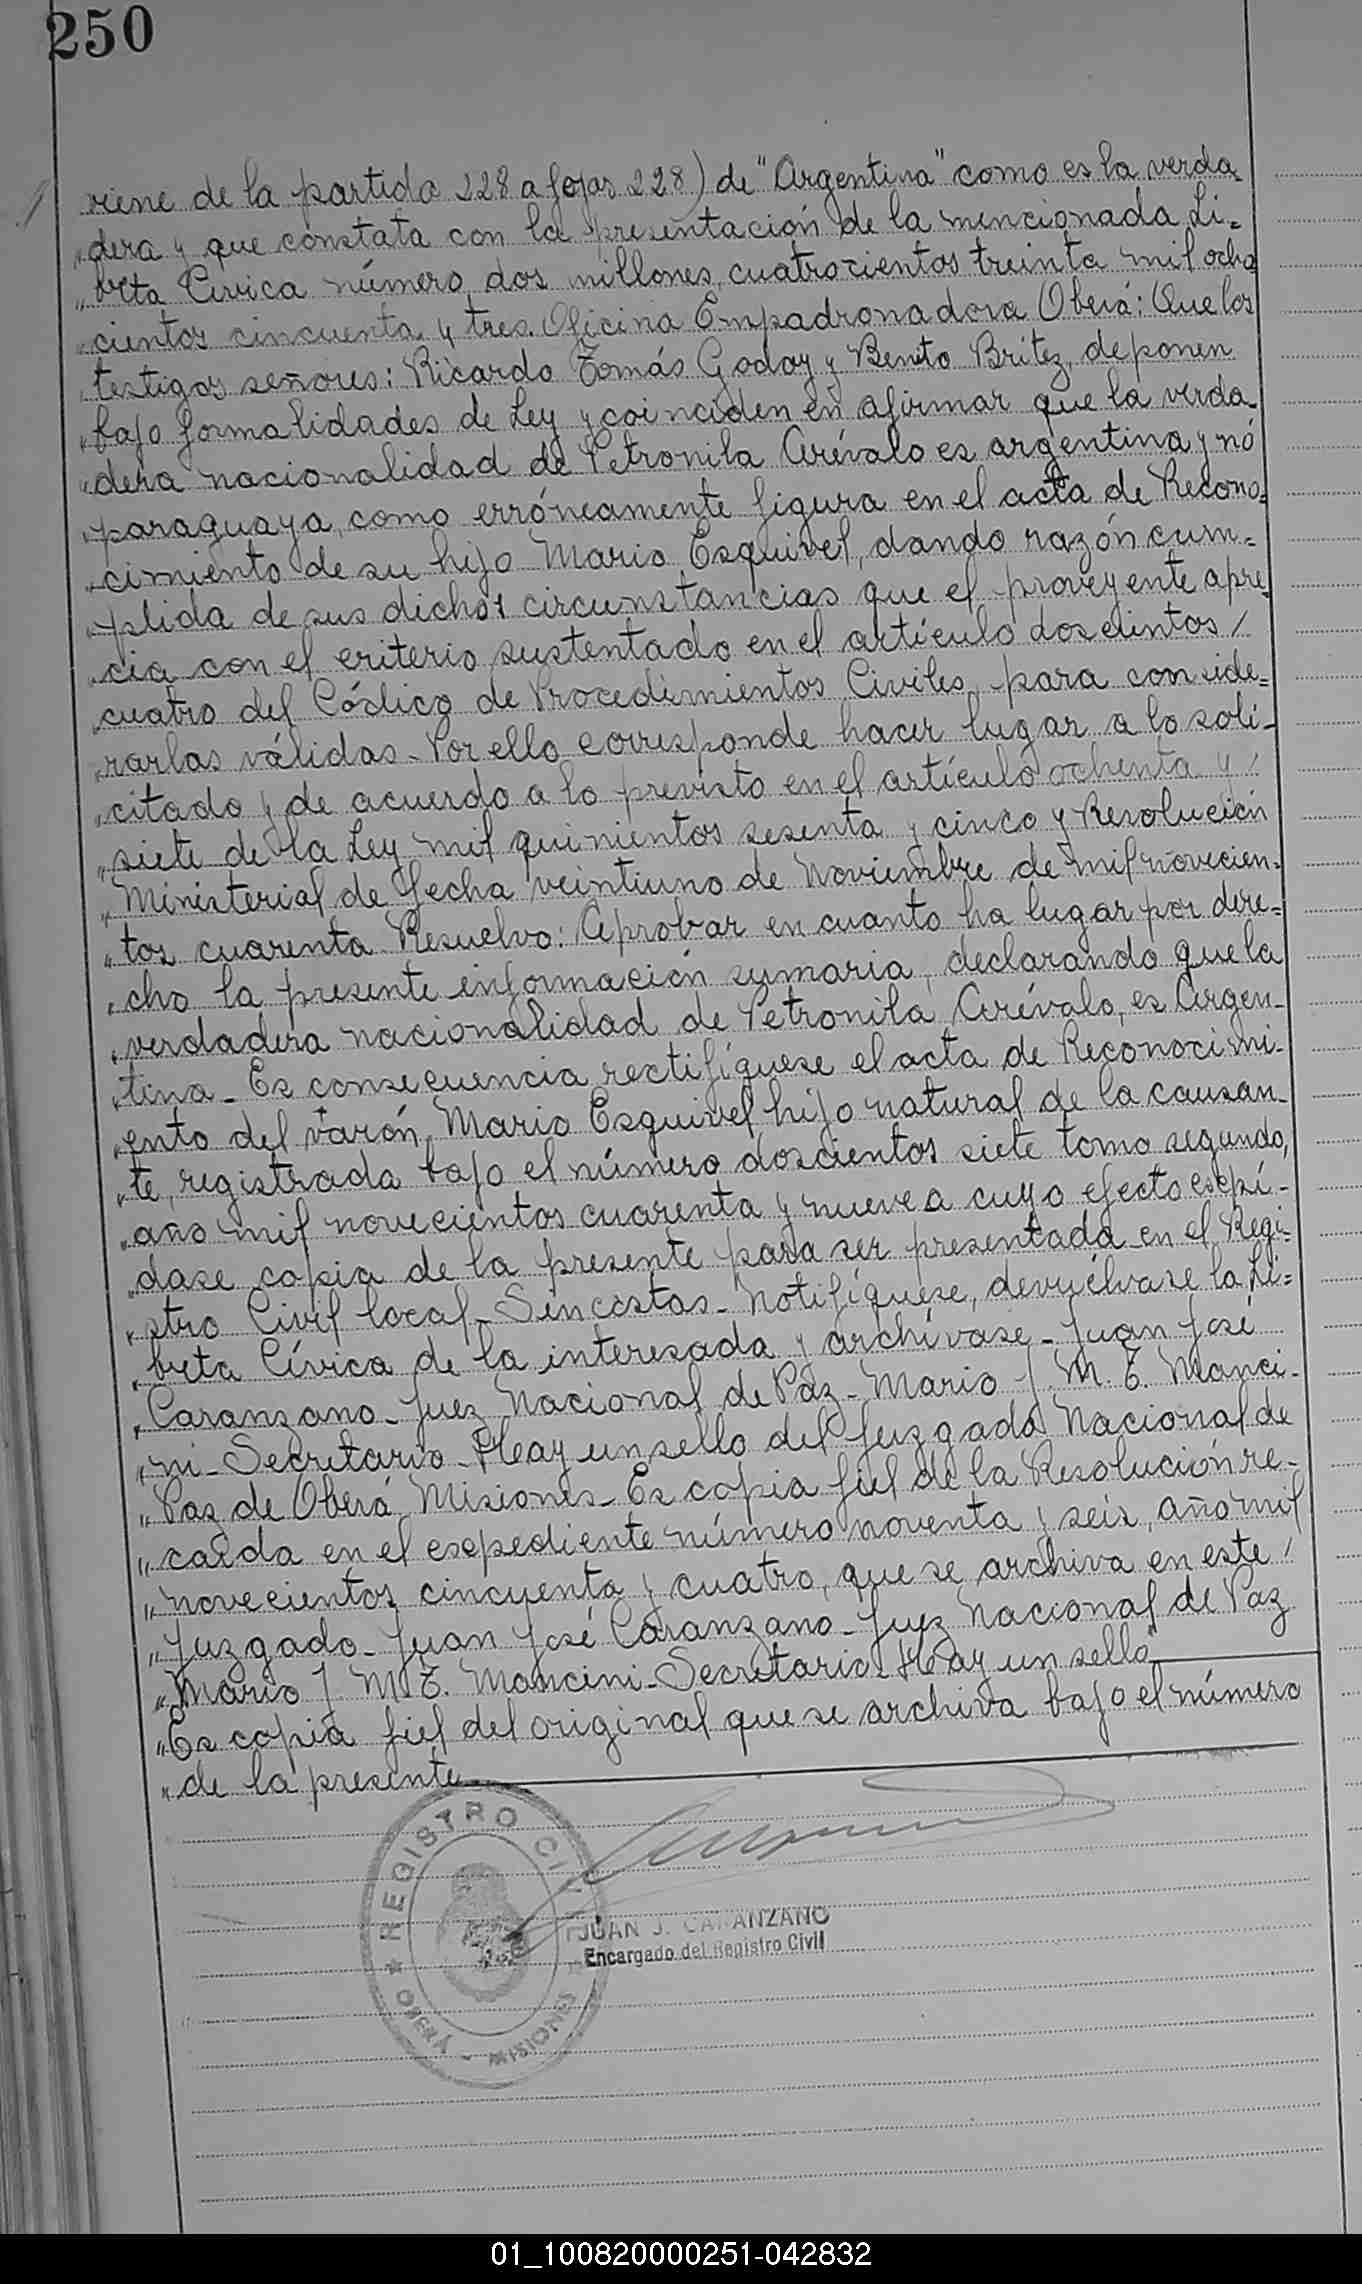 250
viene de la partida 228 a fojas 228) de "Argentina" como es la verda
"dera y que constata con la presentación de la mencionada Li=
"breta Cívica número dos millones, cuatrocientos treinta mil ocho
"cientos cincuenta y tres. Oficina Empadronadora Oberá: Que los
"testigos señores: Ricardo Tomás Godoy y Benito Britez, deponen
"bajo formalidades de Ley y coinciden en afirmar que la verda
"dera nacionalidad de Petronila Arévalo es argentina y nó
"paraguaya, como erróneamente figura en el acta de Recono=
"cimiento de su hijo Mario Esquivel, dando razón cum=
"plida de sus dichos circunstancias que el proveyente apre
"cia con el criterio sustentado en el artículo doscientos /
"cuatro del Código de Procedimientos Civiles, para conside=
"rarlas válidas - Por ello corresponde hacer lugar a lo soli-
"citado y de acuerdo a lo previsto en el artículo ochenta y /
"siete de la Ley mil quinientos sesenta y cinco y Resolución
"Ministerial de fecha veintiuno de Noviembre de mil novecien=
"tos cuarenta Resuelvo: Aprobar en cuanto ha lugar por dere=
"cho la presente información sumaria, declarando que la
"verdadera nacionalidad de Petronila Arévalo, es Argen-
"tina - Es consecuencia rectifíquese el acta de Reconocimi-
"ento del varón, Mario Esquivel hijo natural de la causan-
"te, registrada bajo el número doscientos siete tomo segundo,
"año mil novecientos cuarenta y nueve a cuyo efecto expí-
"dase copia de la presente para ser presentada en el Regi=
"stro Civil local - Sin costas - Notifíquese, devuélvase la Li=
"breta Cívica de la interesada y archívase - Juan José
"Caranzano - Juez Nacional de Paz - Mario J. M. T. Manci-
"ni - Secretario - Hay un sello del Juzgado Nacional de
"Paz de Oberá Misiones - Es copia fiel de la Resolución re-
"caída en el expediente número noventa y seis, año mil
"novecientos cincuenta y cuatro, que se archiva en este /
"Juzgado - Juan José Caranzano - Juez Nacional de Paz
"Mario J M. T. Mancini - Secretario - Hay un sello"
"Es copia fiel del original que se archiva bajo el número
"de la presente
REGISTRO CIVIL
OBERÁ - MISIONES
JUAN J. CARANZANO
Encargado del Registro Civil
01_100820000251-042832